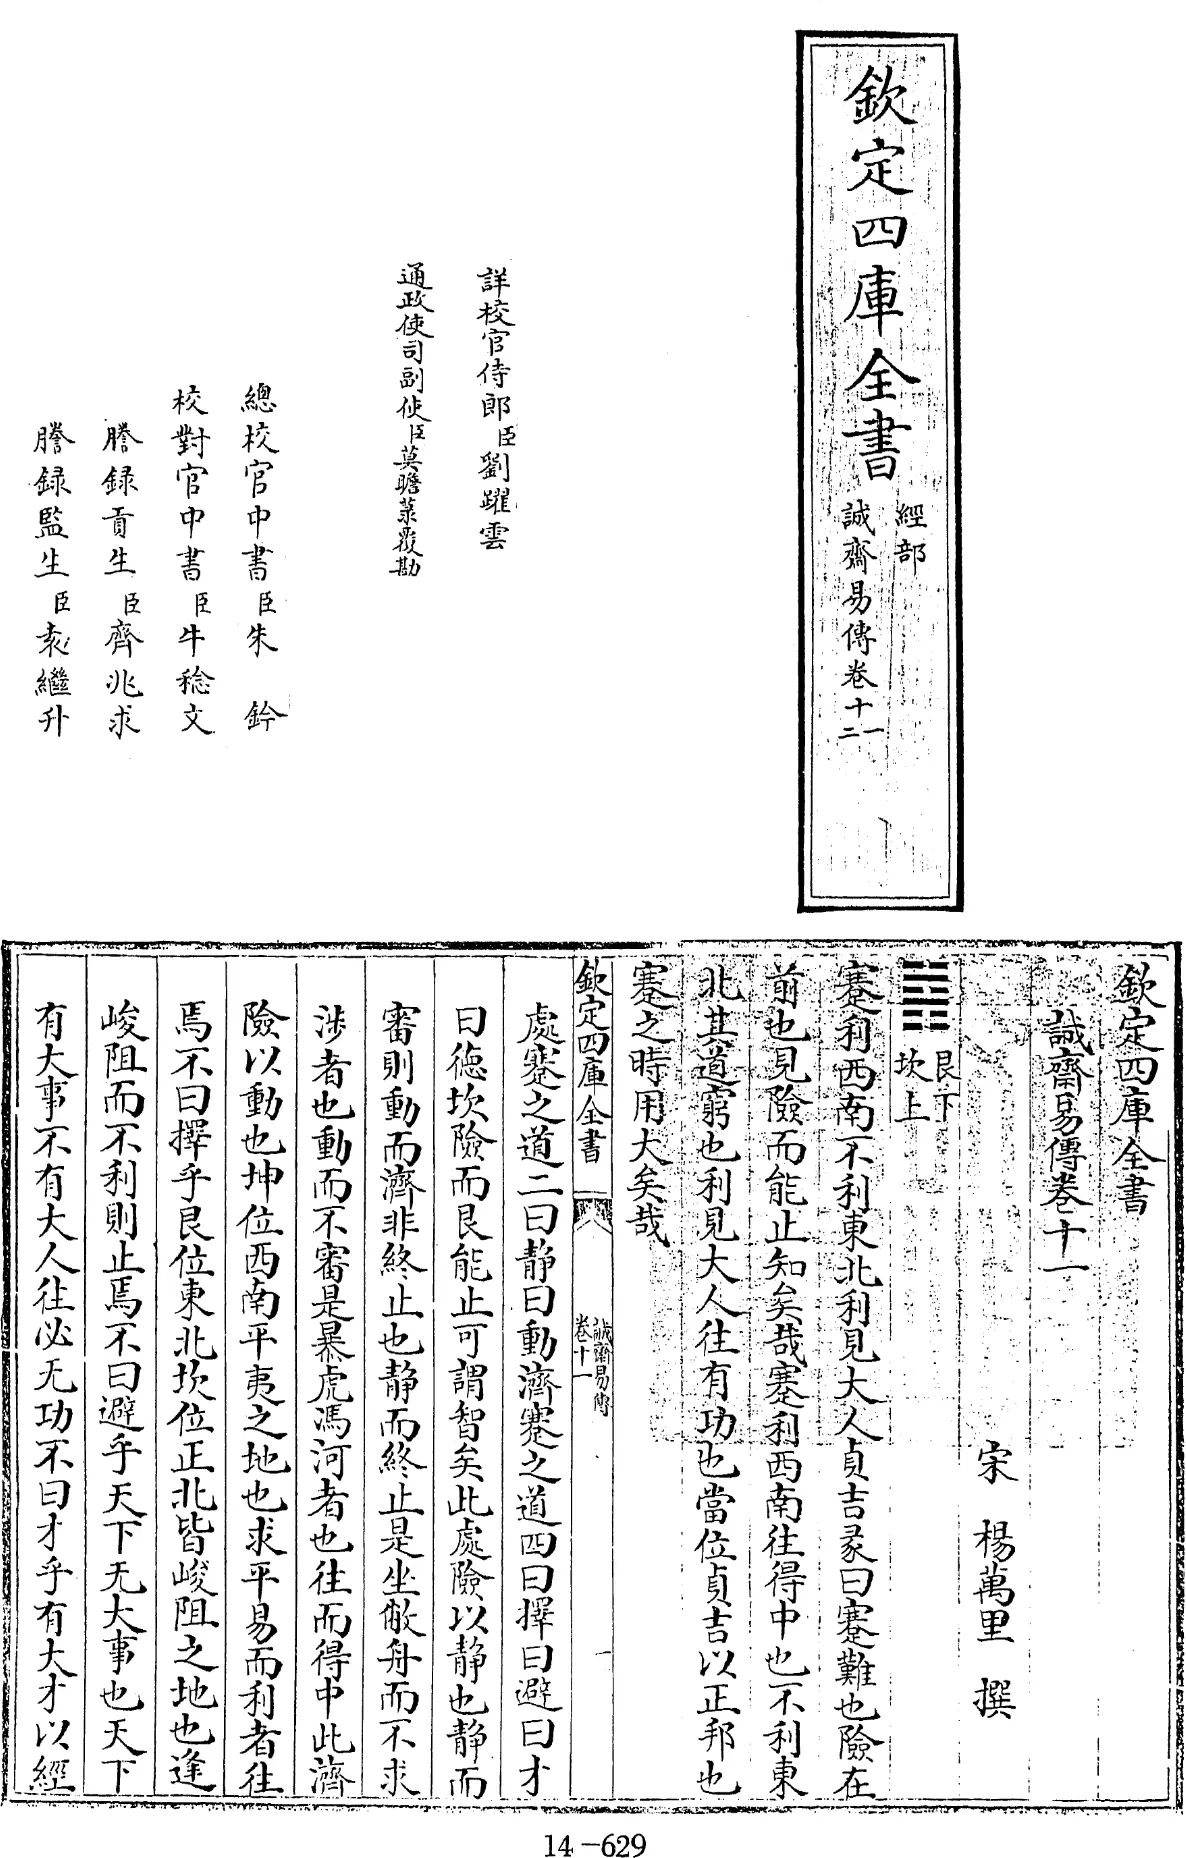 欽定四庫全書
經部
誠齋易傳卷十一
二
詳校官侍郎臣劉躍雲
通政使司副使臣莫瞻菉覆勘
總校官中書臣朱鈐
校對官中書臣牛稔文
謄録貢生臣齊兆求
謄録監生臣袁繼升
欽定四庫全書
誠齋易傳卷十一
宋 楊萬里 撰
艮下
坎上
蹇利西南不利東北利見大人貞吉彖曰蹇難也險在
前也見險而能止知矣哉蹇利西南往得中也不利東
北其道窮也利見大人往有功也當位貞吉以正邦也
蹇之時用大矣哉
欽定四庫全書
誠齋易傳
卷十一
一
處蹇之道二曰静曰動濟蹇之道四曰擇曰避曰才
曰徳坎險而艮能止可謂智矣此處險以静也静而
審則動而濟非終止也静而終止是坐敝舟而不求
涉者也動而不審是暴虎馮河者也往而得中此濟
險以動也坤位西南平夷之地也求平易而利者往
焉不曰擇乎艮位東北坎位正北皆峻阻之地也逢
峻阻而不利則止焉不曰避乎天下无大事也天下
有大事不有大人往必无功不曰才乎有大才以經
14-629